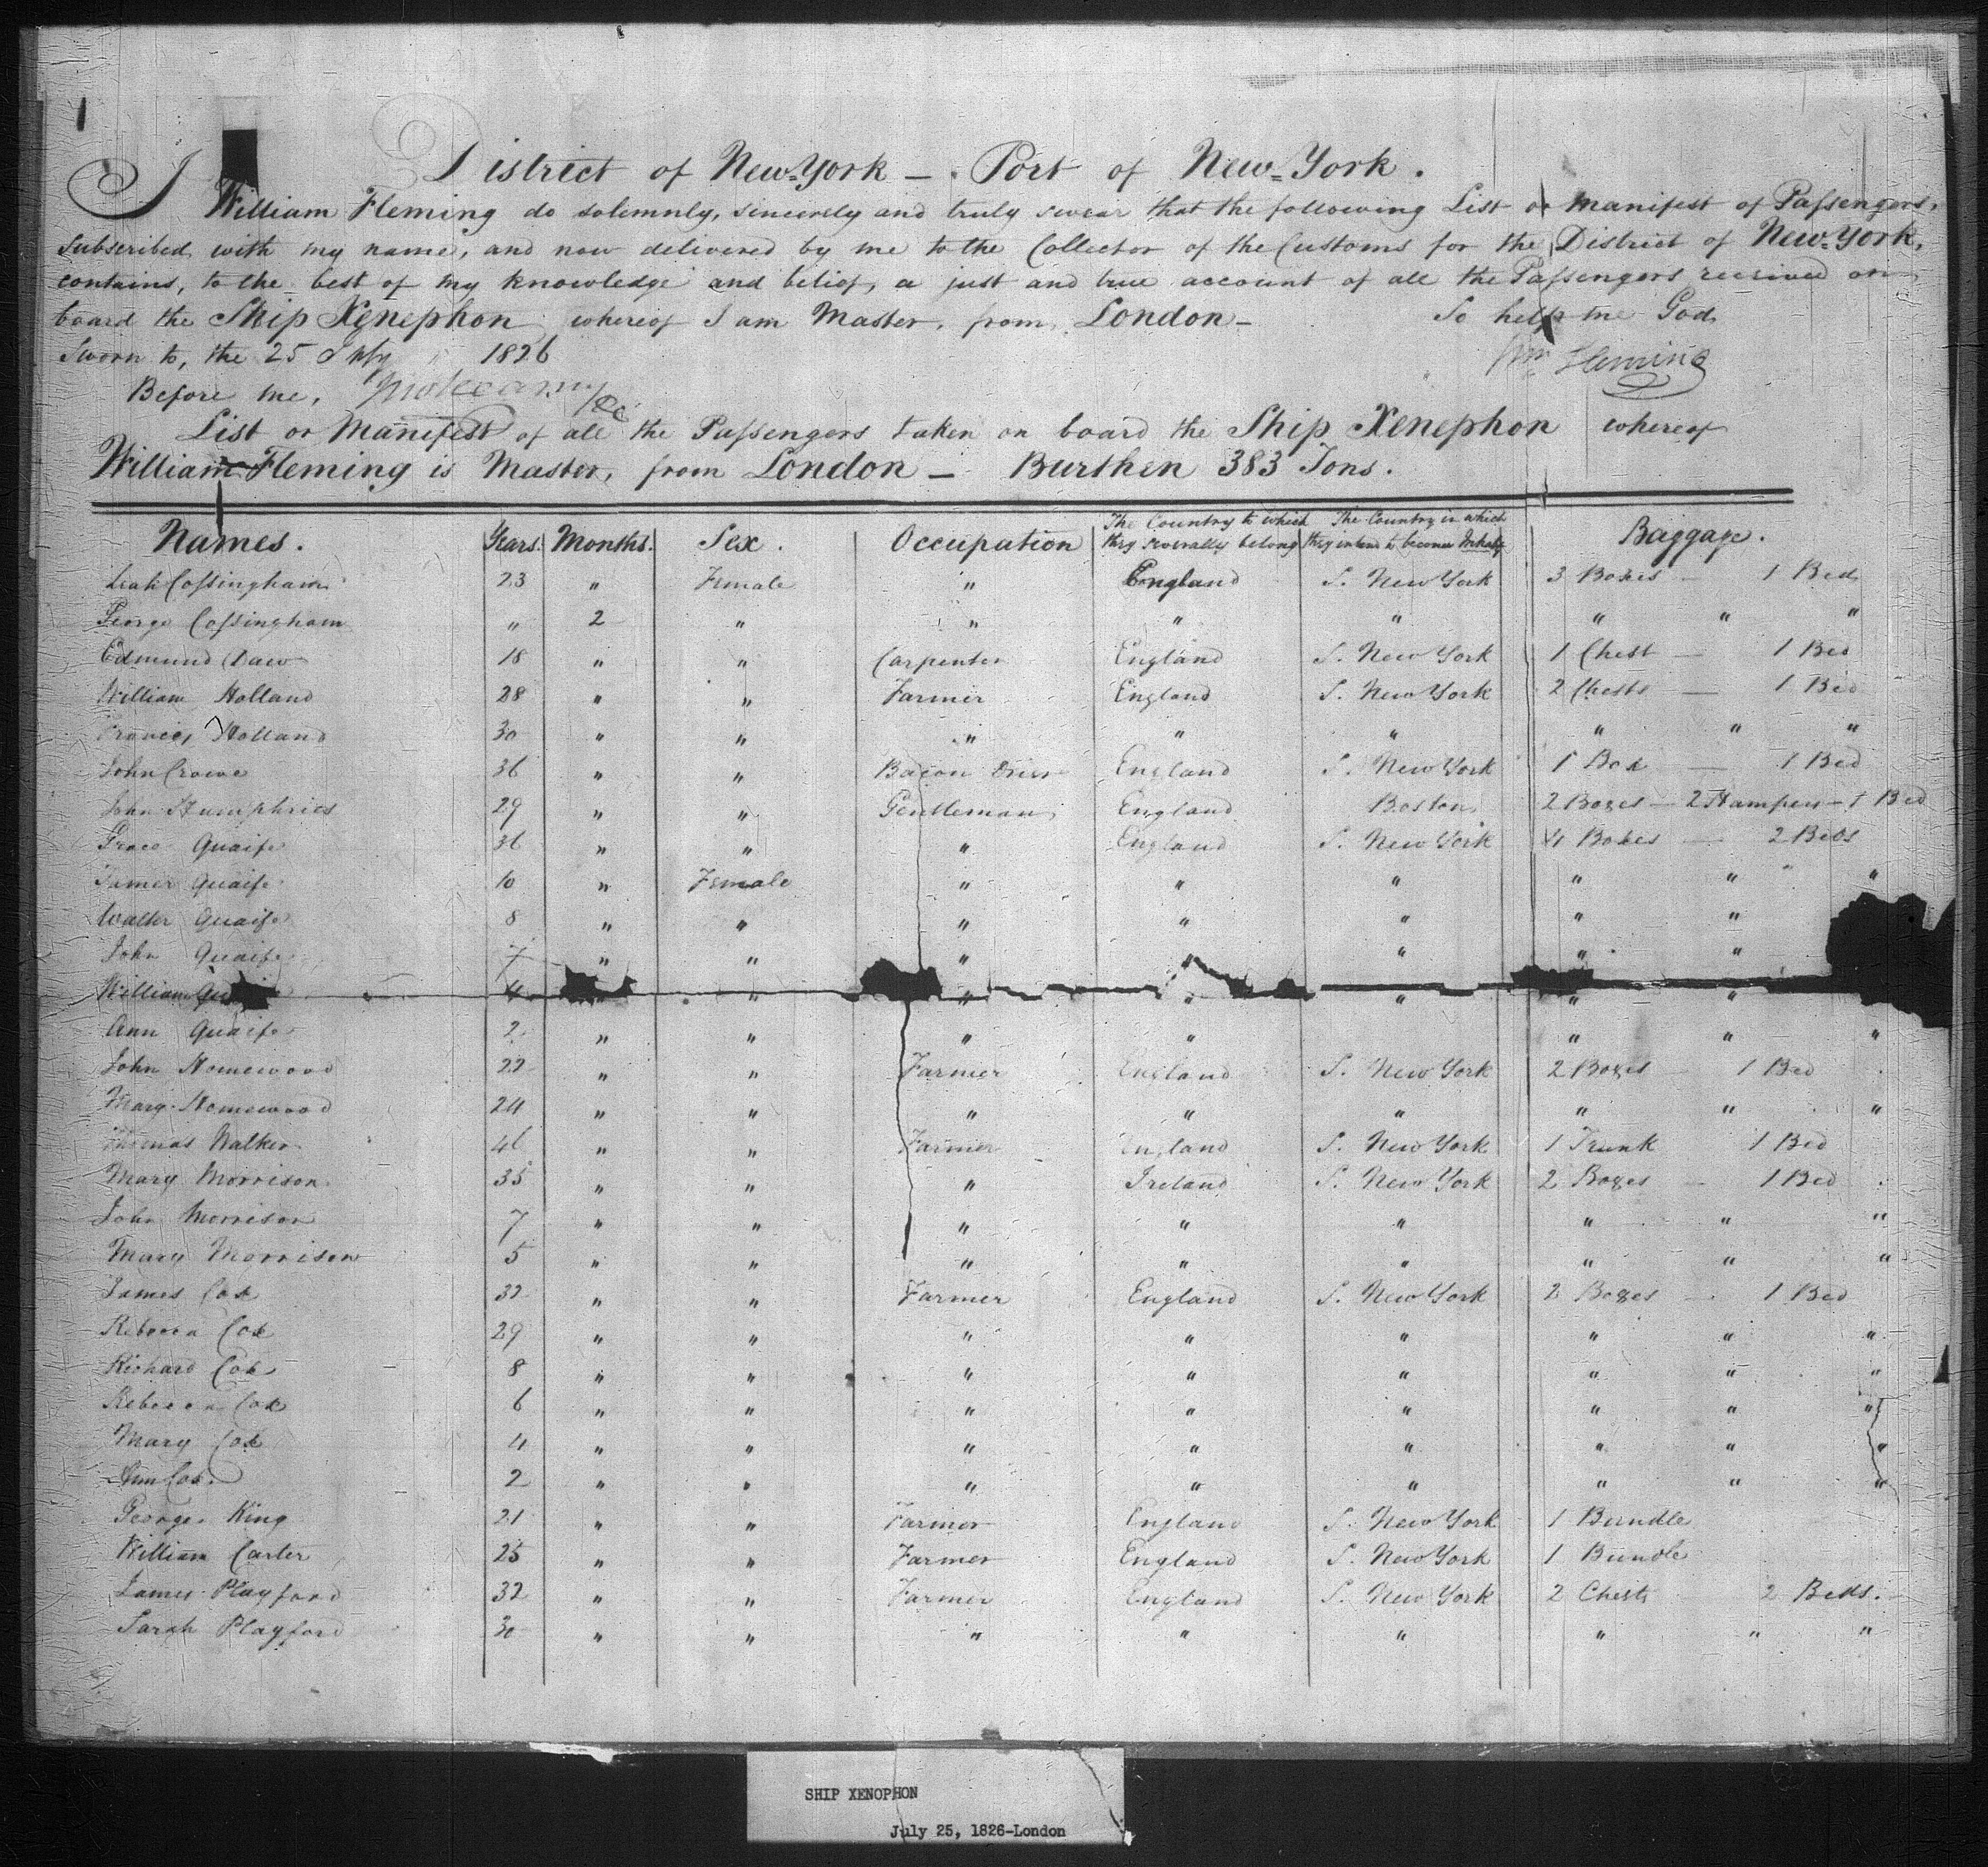 District of New-York — Port of New-York.
I William Fleming do solemnly, sincerely and truly swear that the following List or Manifest of Passengers,
subscribed with my name, and now delivered by me to the Collector of the Customs for the District of New-York,
contains, to the best of my knowledge and belief, a just and true account of all the Passengers received on
board the Ship Xenephon whereof I am Master, from London — So help me God
Sworn to, the 25 July 1826 Wm Fleming
Before me,
List or Manifest of all the Passengers taken on board the Ship Xenephon whereof
William Fleming is Master, from London — Burthen 383 Tons.
Names. Years. Months. Sex. Occupation The Country to which they severally belong The Country in which they intend to become Inhab Baggage.
Leah Cossingham 23 " Female " England S. New York 3 Boxes — 1 Bed
George Cossingham " 2 " " " " " " "
Edmund Daw 18 " " Carpenter England S. New York 1 Chest — 1 Bed
William Holland 28 " " Farmer England S. New York 2 Chests — 1 Bed
Frances Holland 30 " " " " " " " "
John Crowe 36 " " Bacon Drier England S. New York 1 Box — 1 Bed
John Humphries 29 " " Gentleman England Boston 2 Boxes — 2 Hampers — 1 Bed
Grace Quaife 36 " " " England S. New York 4 Boxes — 2 Beds
Quaife 10 " Female " " " " " "
Walter Quaife 8 " " " " " " "
John Quaife 7 " " " " " " "
William 4 " " " " " "
Ann Quaife 2 " " " " " " "
John Homewood 22 " " Farmer England S. New York 2 Boxes 1 Bed
Mary Homewood 24 " " " " " " " "
Thomas Walker 46 " " Farmer England S. New York 1 Trunk 1 Bed
Mary Morrison 35 " " " Ireland S. New York 2 Boxes — 1 Bed
John Morrison 7 " " " " " " " "
Mary Morrison 5 " " " " " " " "
James Cox 32 " " Farmer England S. New York 2 Boxes — 1 Bed
Rebecca Cox 29 " " " " " " " "
Richard Cox 8 " " " " " " " "
Rebecca Cox 6 " " " " " " " "
Mary Cox 4 " " " " " " " "
Ann Cox 2 " " " " " " " "
George King 21 " " Farmer England S. New York 1 Bundle
William Carter 25 " " Farmer England S. New York 1 Bundle
James Playford 32 " " Farmer England S. New York 2 Chests 2 Beds.
Sarah Playford 30 " " " " " " " "
SHIP XENOPHON
July 25, 1826-London